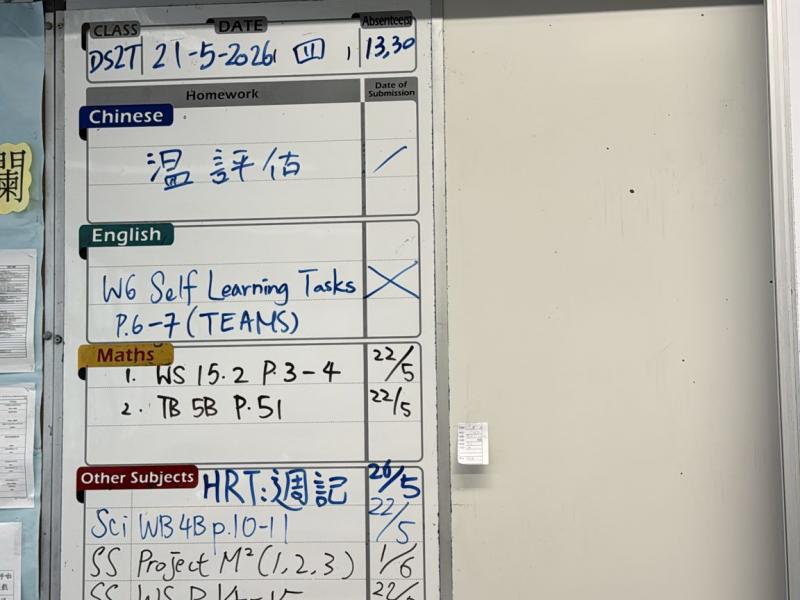 CLASS DATE Absentees
DS2T 21-5-2026 四 13,30
Homework Date of Submission
Chinese
温 評估 /
English
W6 Self Learning Tasks
P.6-7 (TEAMS)
Maths
1. WS 15.2 P.3-4 22/5
2. TB 5B P.51 22/5
Other Subjects HRT:週記 26/5
Sci WB4B p.10-11 22/5
SS Project M²(1,2,3) 1/6
SS WS P.14-15 22/5